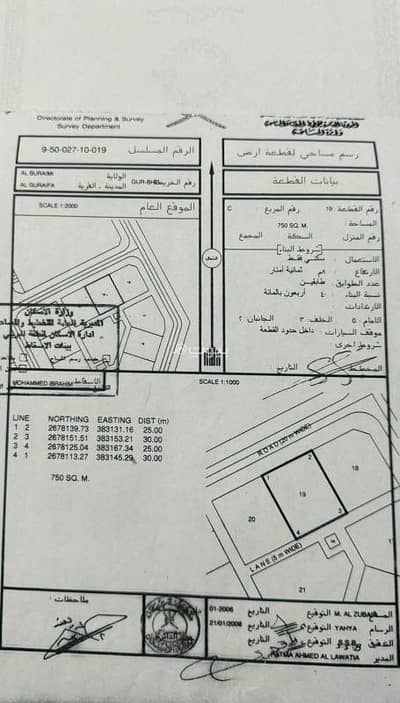 Directorate of Planning & Survey
Survey Department
9-50-027-10-019
الرقم المسلسل
رسم مساحي لقطعة ارض
AL BURAIMI
الولاية
AL GURAIFA
المدينة - القرية
رقم الخريطة
بيانات القطعة
SCALE 1:2000
الموقع العام
رقم القطعة: 19
رقم المربع
C
المساحة:
750 SQ. M.
رقم المنزل
السكة
المجمع
شروط البناء
الاستعمال
سكني فقط
الارتفاع
٨م ثمانية أمتار
عدد الطوابق
طابقين
نسبة البناء
٤٠ أربعون بالمائة
الارتدادات
الامام: ٥
الخلف: ٣
الجانبان: ٢
موقف السيارات: داخل حدود القطعة
شروط اخرى
المخطط
التاريخ:
وزارة الاسكان
بيانات الاسقاط
شمال
MOHAMMED IBRAHIM
الاسقاط
SCALE 1:1000
LINE NORTHING EASTING DIST (m)
1 2 2678139.73 383131.16 25.00
2 3 2678151.51 383153.21 30.00
3 4 2678125.04 383167.34 25.00
4 1 2678113.27 383145.29 30.00
750 SQ. M.
ROAD (20 m WIDE)
1
2
18
19
20
3
4
LANE (6 m WIDE)
21
ملاحظات:
01-2006
التاريخ
التوقيع
M. AL ZUBAIR
المساح
21/01/2006
التاريخ
التوقيع
YAHYA
الرسام
التاريخ
التوقيع
التدقيق
FATMA AHMED AL LAWATIA
المدير